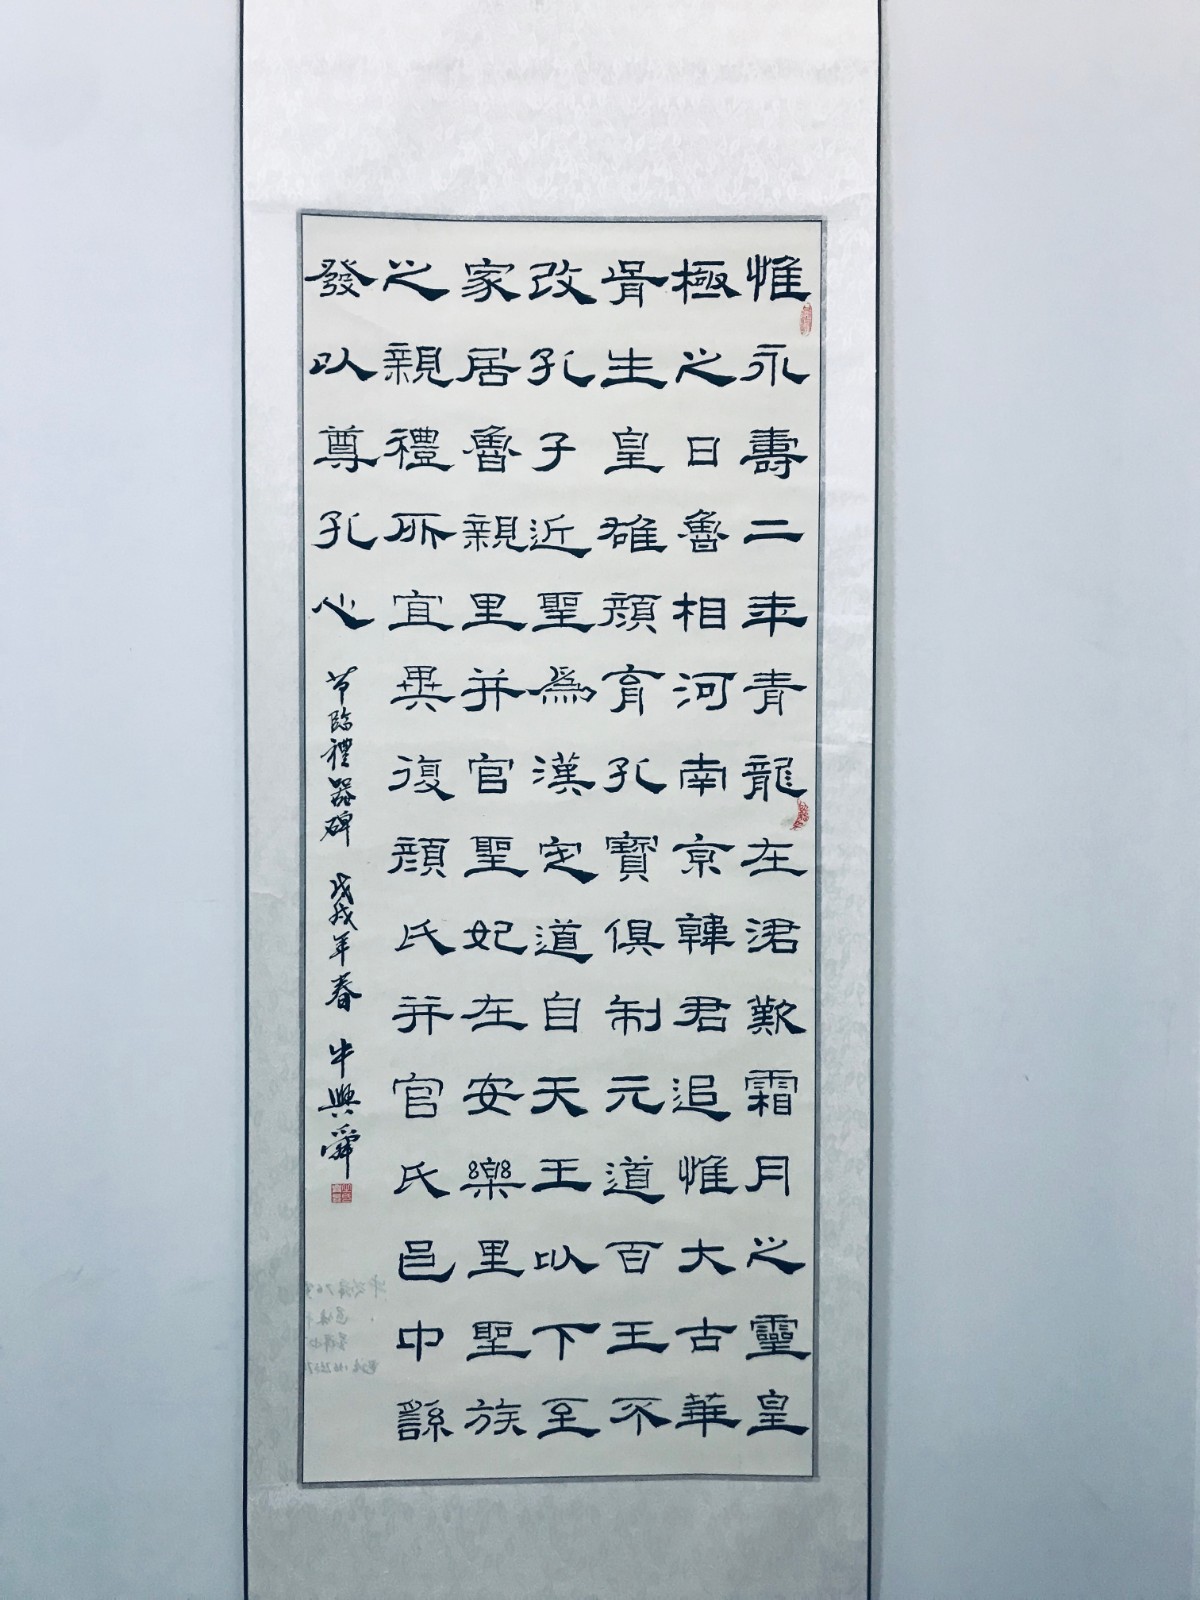 惟永壽二年青龍在涒歎霜月之靈皇
極之日魯相河南京韓君追惟大古華
胥生皇雄顏育孔寶俱制元道百王不
改孔子近聖為漢定道自天王以下至
家居魯親里并官聖妃在安樂里聖族
之親禮所宜異復顏氏并官氏邑中繇
發以尊孔心
节臨禮器碑 戊戌年春 牛興舜